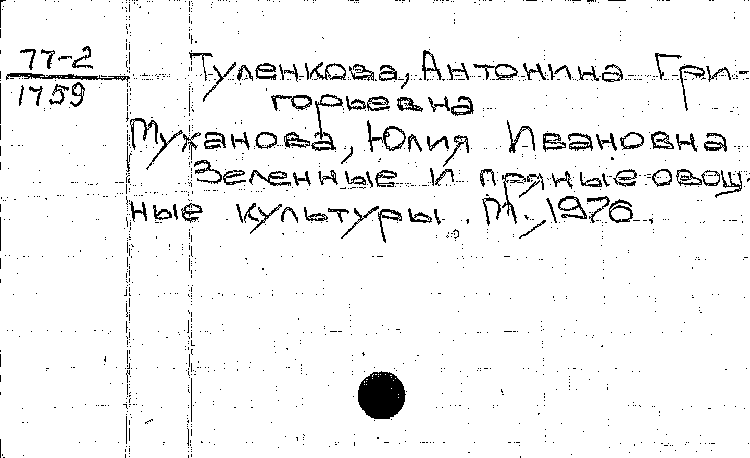 77-2
1759
Туленкова, Антонина Гри-
горьевна
Муханова, Юлия Ивановна
Зеленные и пряные овощ-
ные культуры. М., 1976.